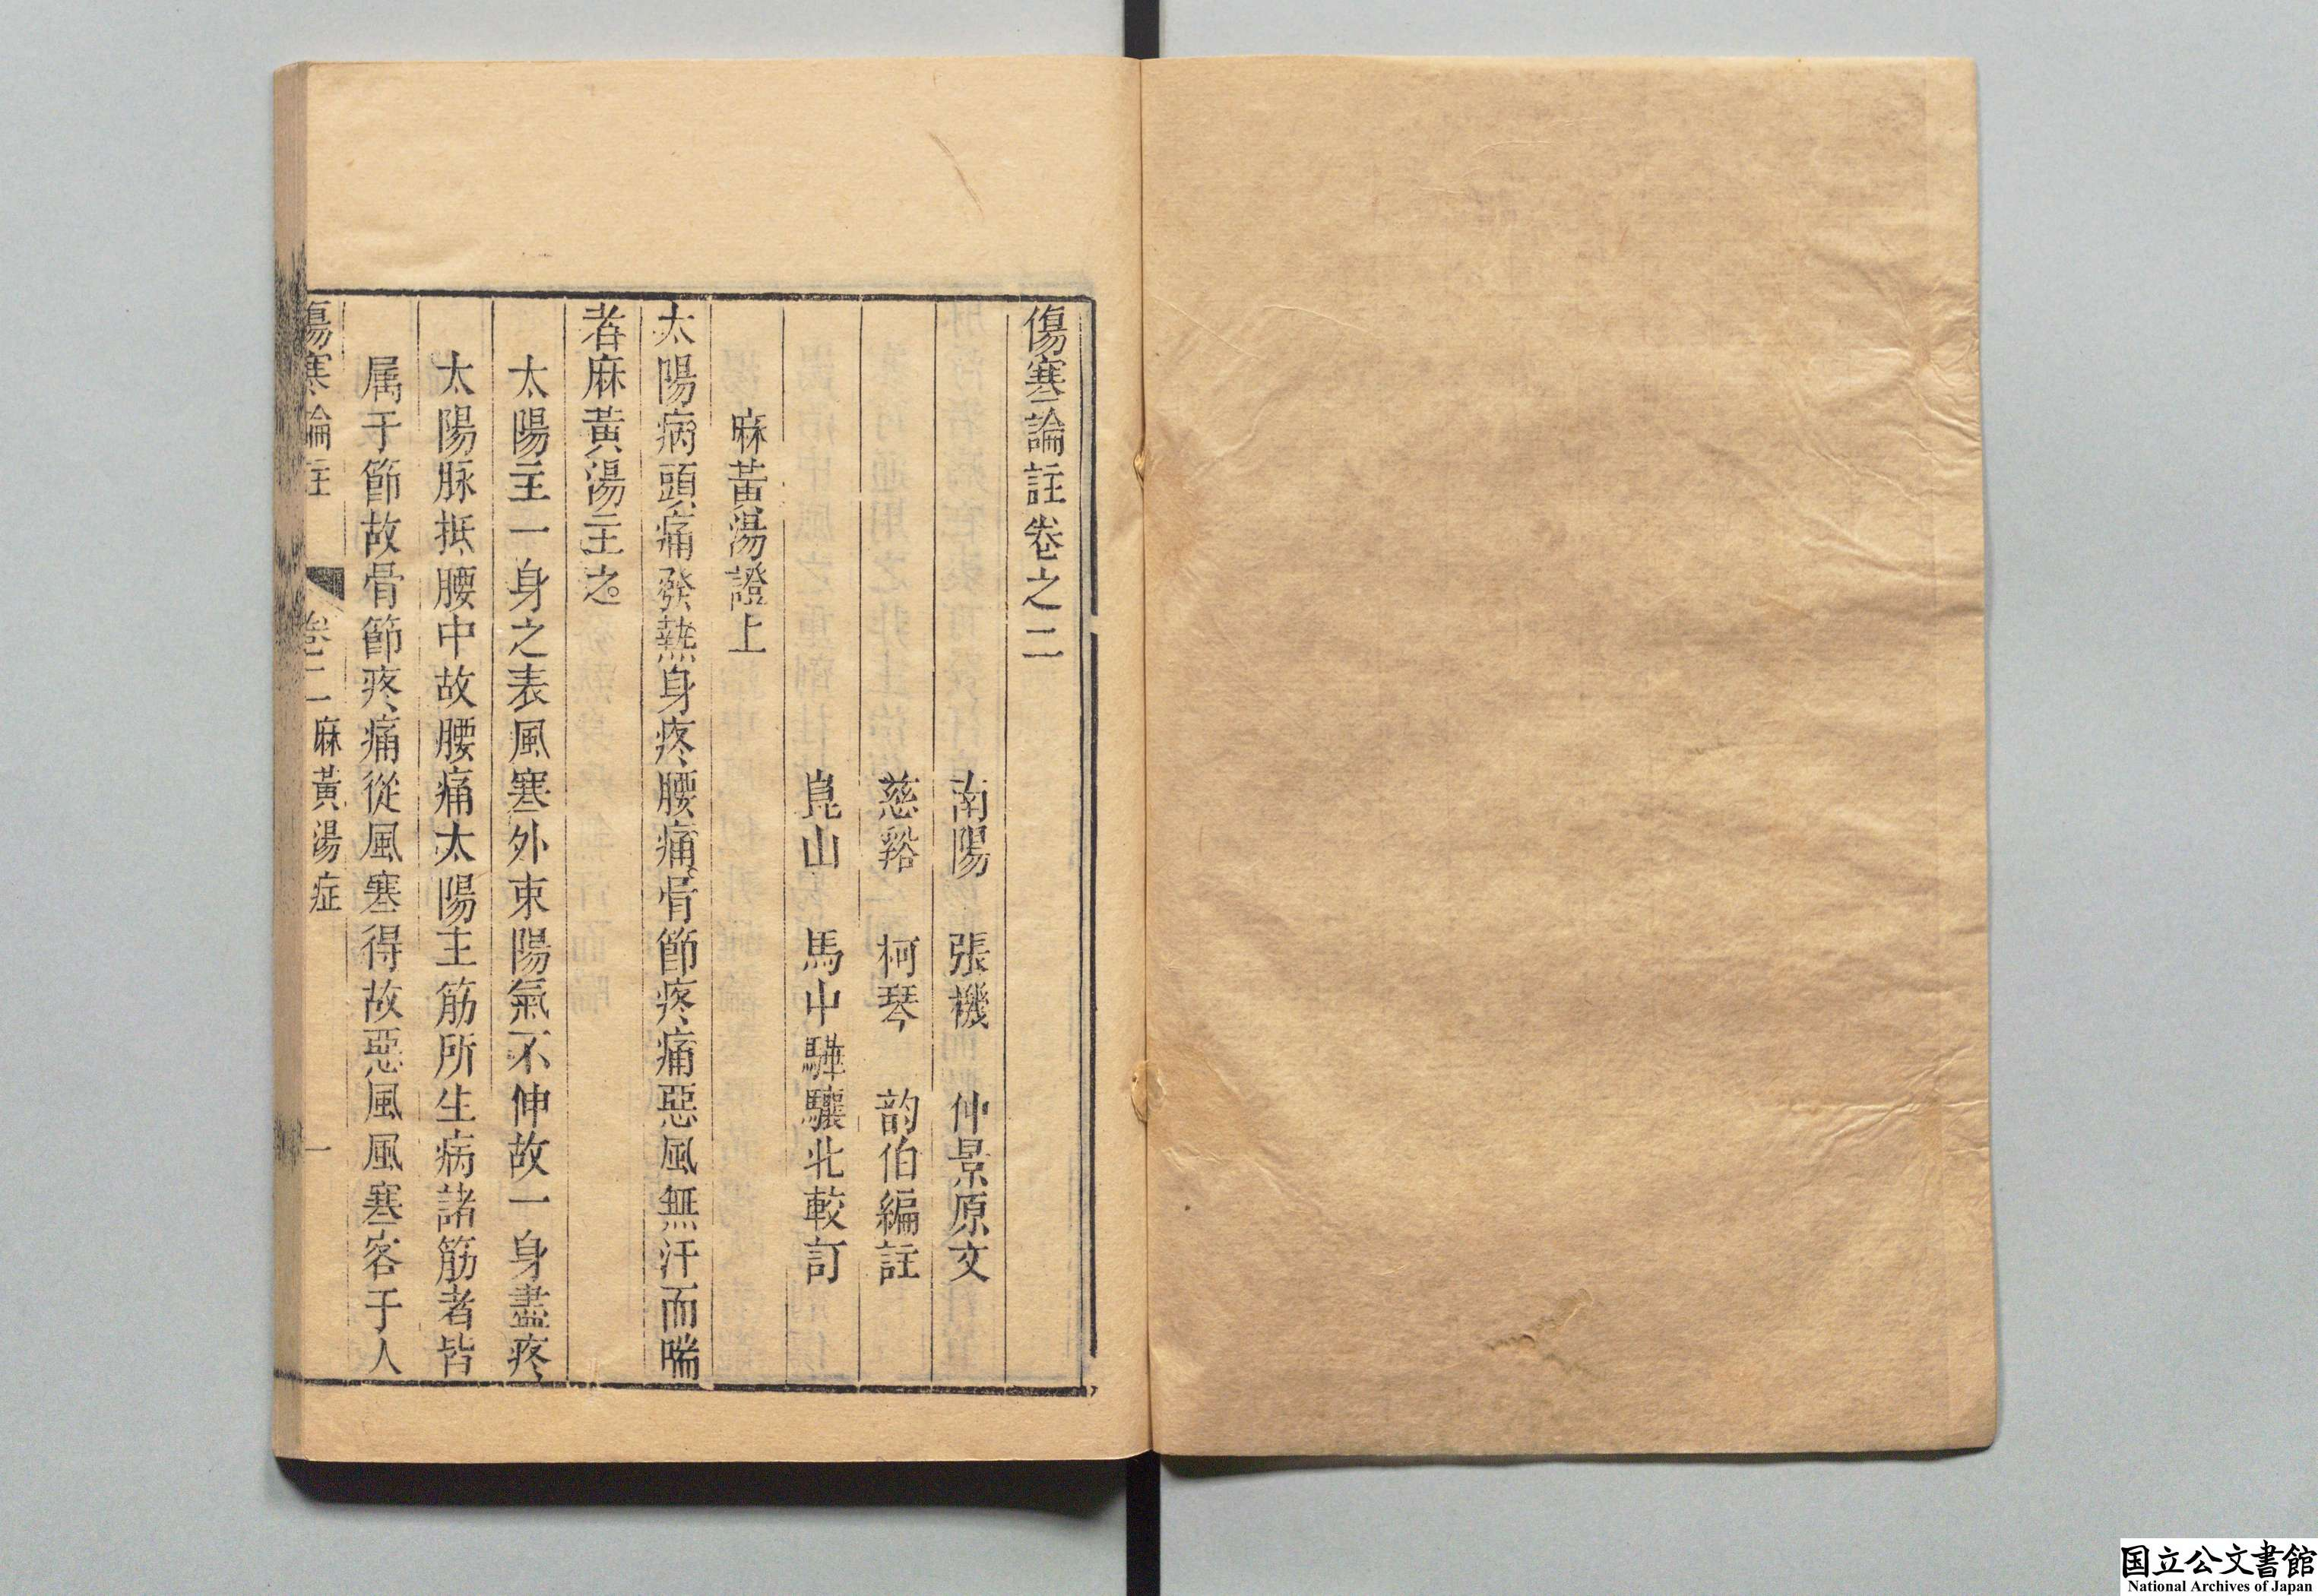 傷寒論註卷之二
南陽　張機　仲景原文
慈谿　柯琴　韵伯編註
崑山　馬中驊驤北較訂
麻黃湯證上
太陽病頭痛發熱身疼腰痛骨節疼痛惡風無汗而喘
者麻黃湯主之。
太陽主一身之表風寒外束陽氣不伸故一身盡疼
太陽脉抵腰中故腰痛太陽主筋所生病諸筋者皆
属于節故骨節疼痛從風寒得故惡風風寒客于人
傷寒論註　卷二　麻黃湯症　一
国立公文書館
National Archives of Japan